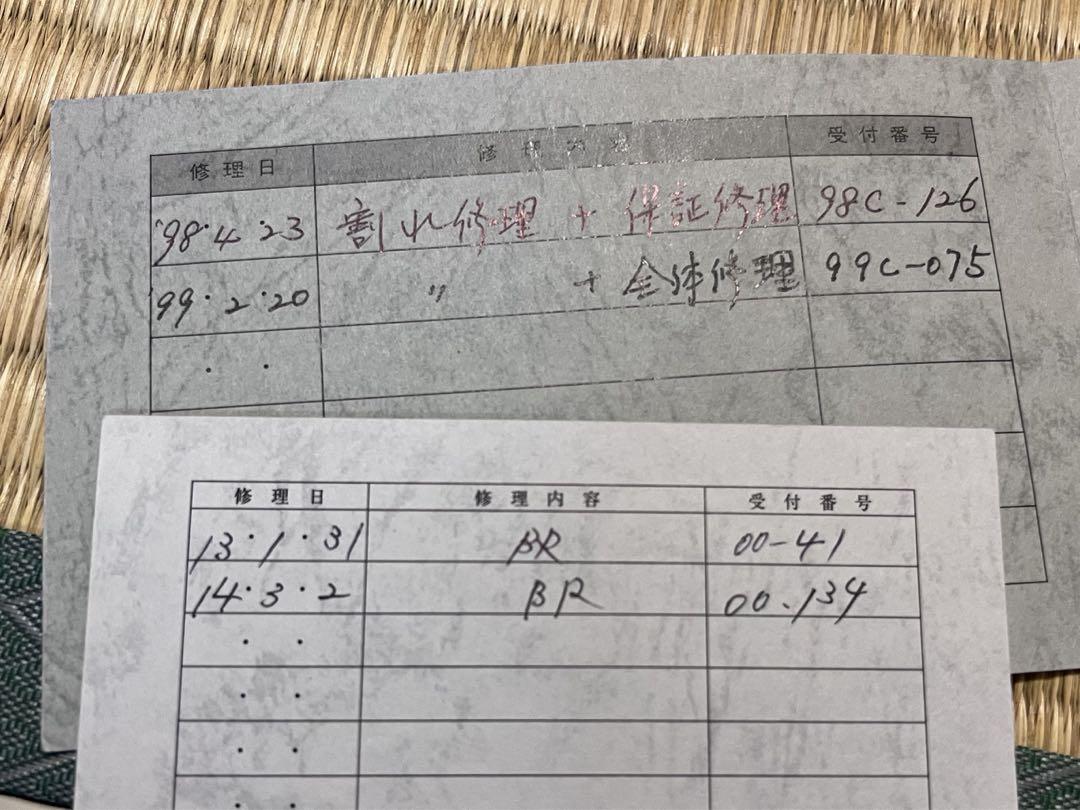 修理日 修理内容 受付番号
'98・4・23 割れ修理 + 保証修理 98C-126
'99・2・20 〃 + 全体修理 99C-075
・ ・
修理日 修理内容 受付番号
13・1・31 BR 00-41
14・3・2 BR 00-134
・ ・
・ ・
・ ・
・ ・